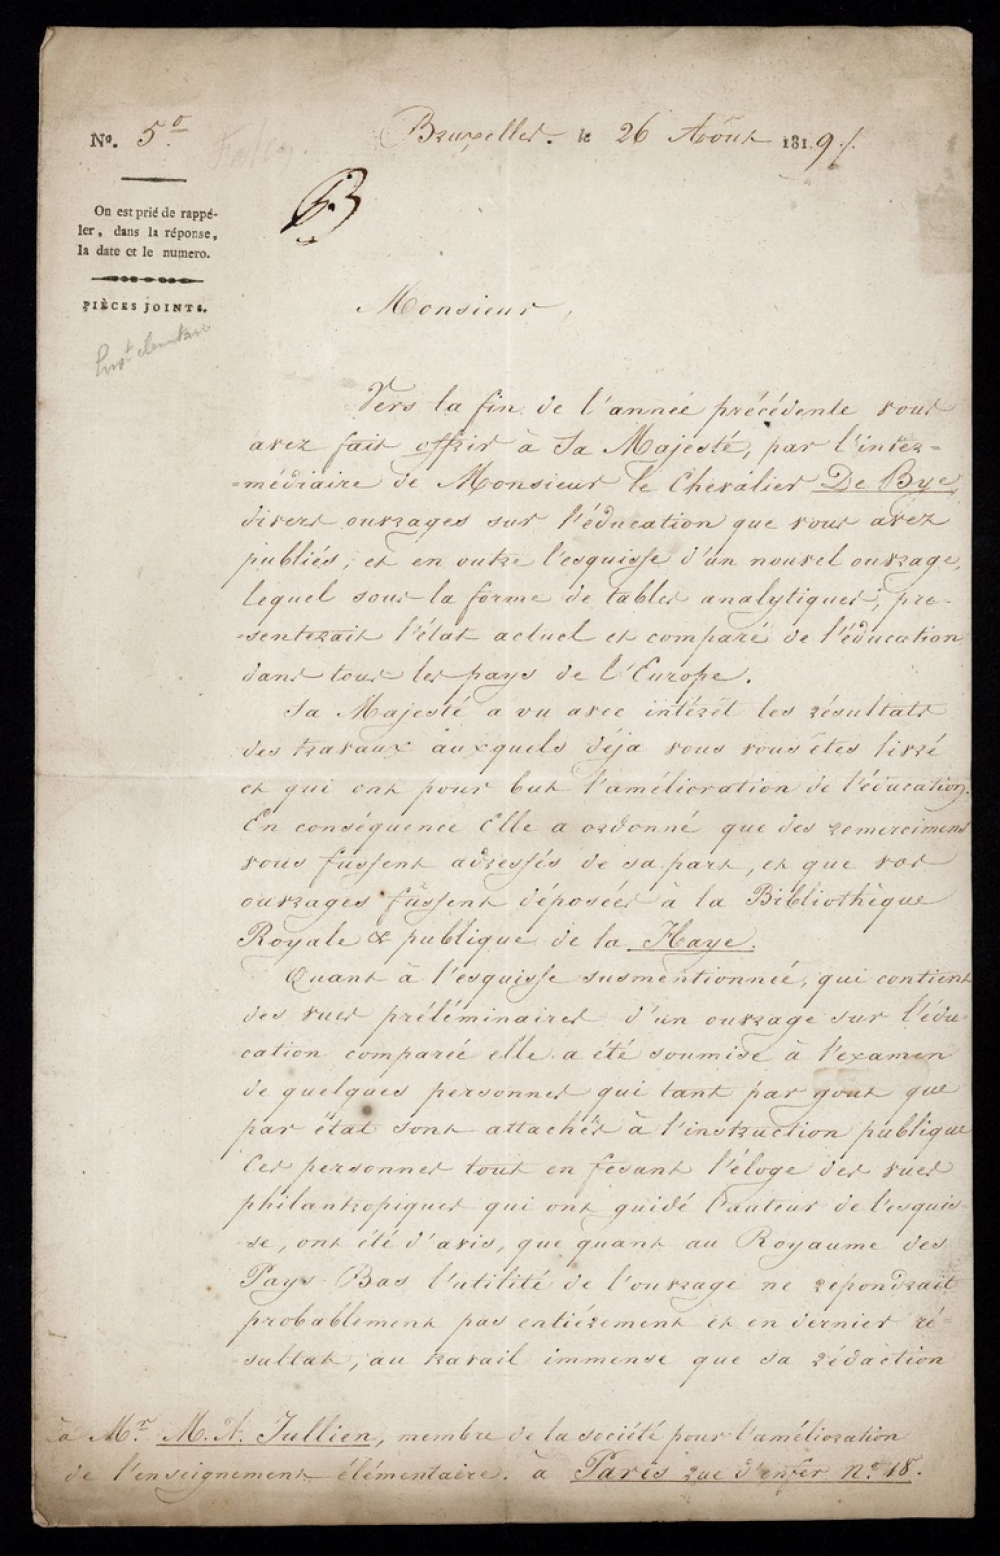 N.º 5º
Bruxelles. le 26 Août 1819./.
On est prié de rappé-
ler, dans la réponse,
la date et le numero.
PIÈCES JOINTS.
Monsieur,
Vers la fin de l'année précédente vous
avez fait offrir à Sa Majesté, par l'inter=
=médiaire de Monsieur le Chevalier De Bye,
divers ouvrages sur l'éducation que vous avez
publiés, et en outre l'esquisse d'un nouvel ouvrage,
lequel sous la forme de tables analytiques, pre-
-senterait l'état actuel et comparé de l'éducation
dans tous les pays de l'Europe.
Sa Majesté a vu avec intérêt les résultats
des travaux auxquels déja vous vous êtes livré
et qui ont pour but l'amélioration de l'éducation.
En conséquence Elle a ordonné que des remercimens
vous fussent adressés de sa part, et que vos
ouvrages fussent déposées à la Bibliothèque
Royale & publique de la Haye.
Quant à l'esquisse susmentionnée, qui contient
des vues préléminaires d'un ouvrage sur l'édu-
cation comparée elle a été soumise à l'examen
de quelques personnes qui tant par gout que
par état sont attachés à l'instruction publique
Ces personnes tout en fesant l'éloge des vues
philantropiques qui ont guidé l'auteur de l'esquis-
-se, ont été d'avis, que quant au Royaume des
Pays-Bas l'utilité de l'ouvrage ne repondrait
probablement pas entièrement et en dernier ré-
sultat, au travail immense que sa rédaction
à Mr. M. A. Jullien, membre de la société pour l'amélioration
de l'enseignement élémentaire. à Paris rue d'enfer Nº 18.